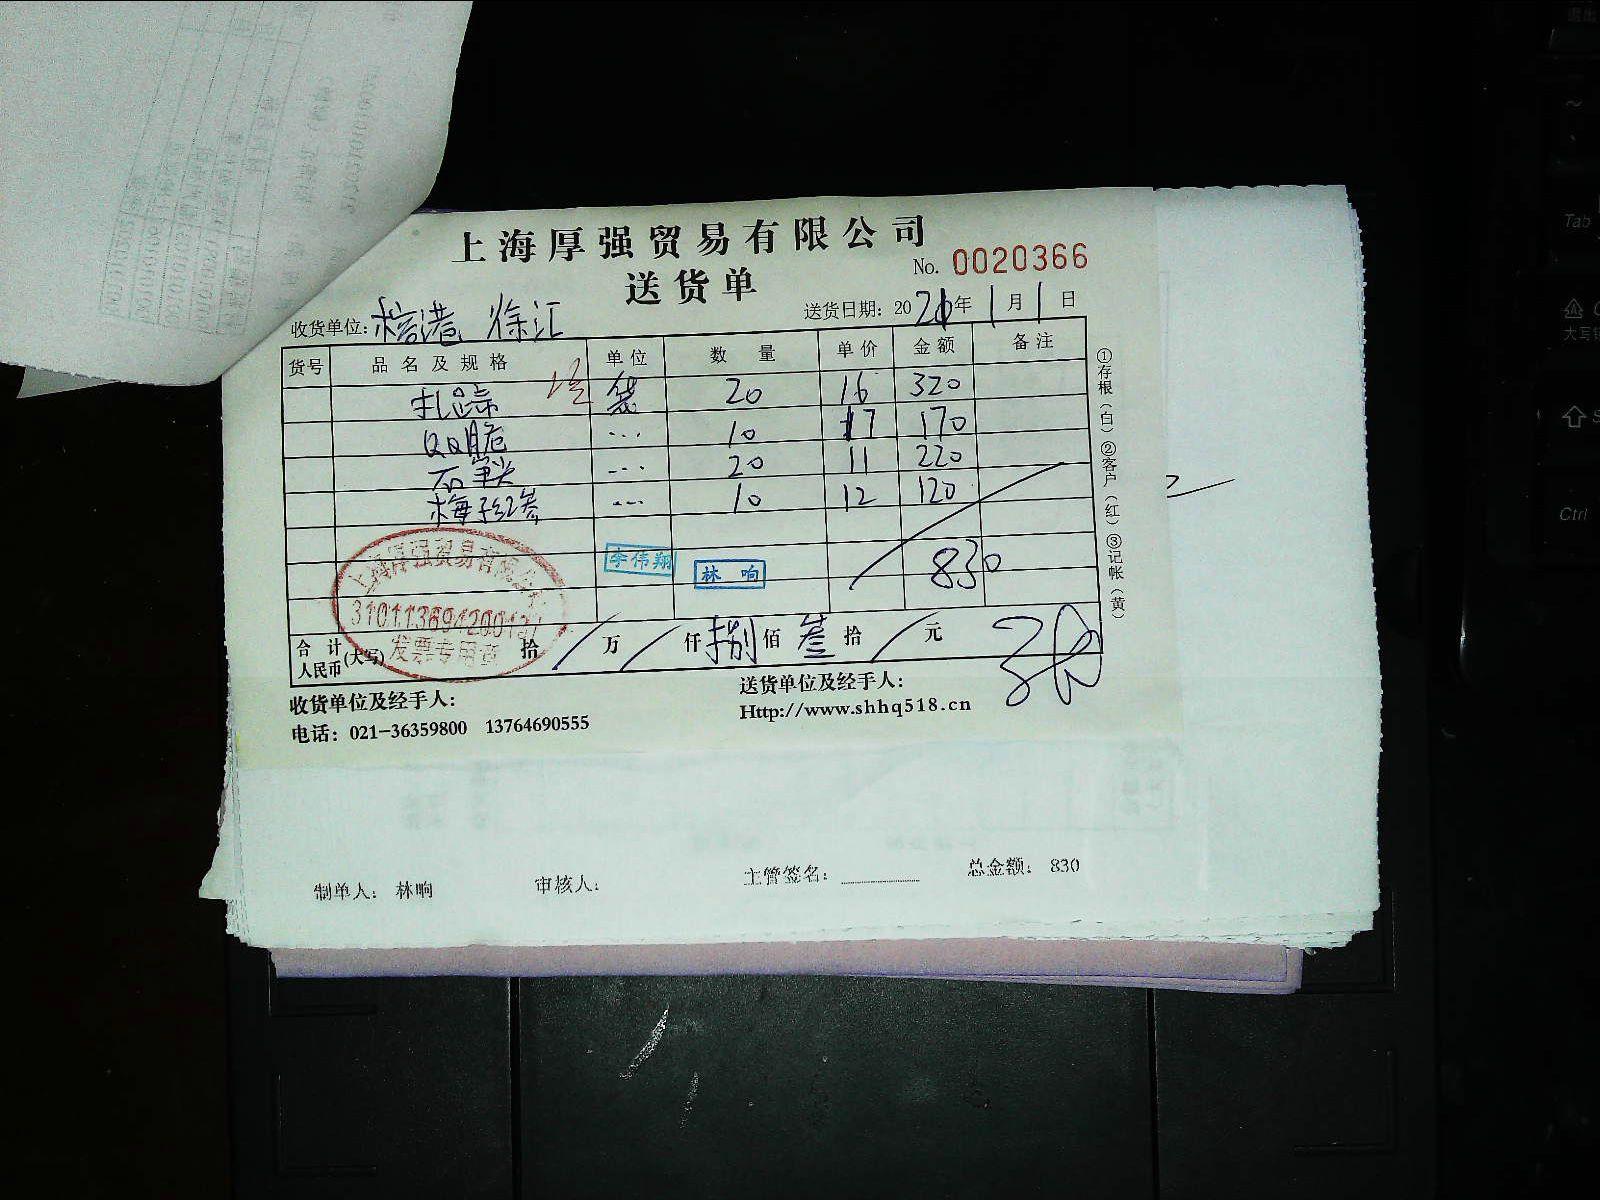 上海厚强贸易有限公司
No. 0020366
送货单
收货单位: 榕港 徐汇
送货日期: 2021年1月1日
货号 品名及规格 单位 数量 单价 金额 备注
扎蹄 袋 20 16 320
QQ脆 ... 10 17 170
... 20 11 220
梅子红参 ... 10 12 120
李伟翔 林响
830
上海厚强贸易有限公司
发票专用章
合计人民币(大写) 拾 万 仟 捌 佰 叁 拾 元
收货单位及经手人:
送货单位及经手人:
电话: 021-36359800 13764690555
Http://www.shhq518.cn
①存根(白)②客户(红)③记帐(黄)
制单人: 林响 审核人: 主管签名: 总金额: 830
Tab
大写
Ctrl